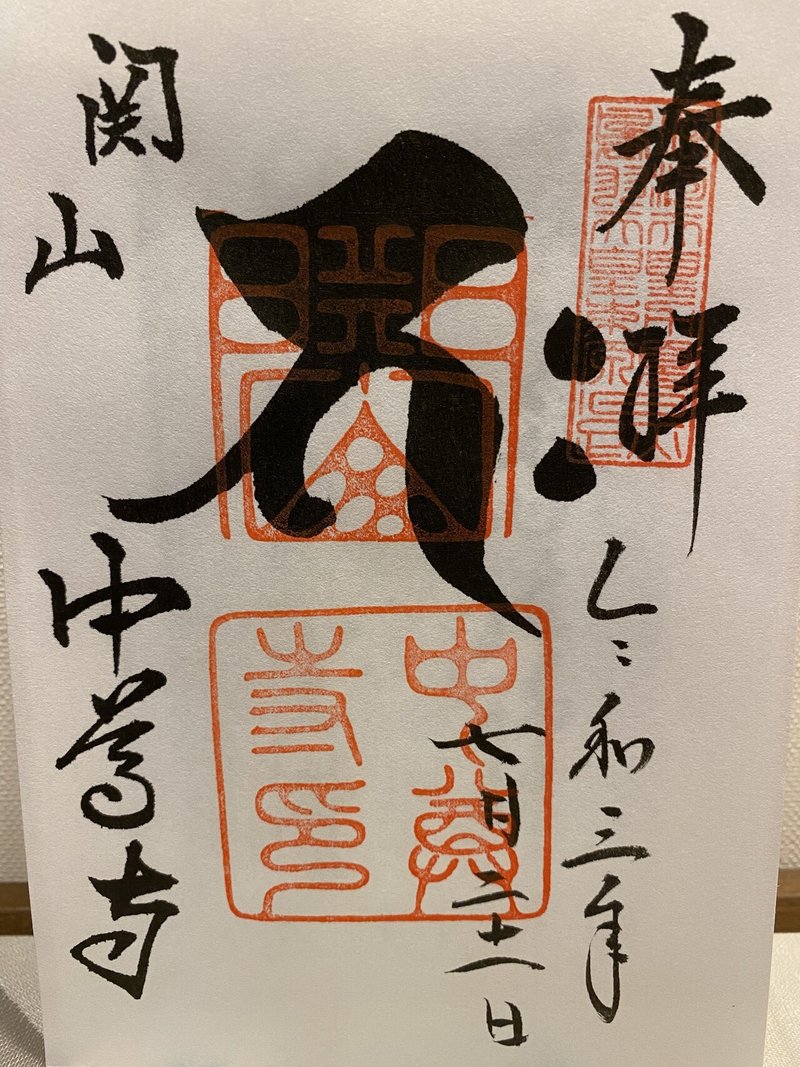 奉拝
令和三年
七月二十一日
中尊
寺印
関山
中尊寺